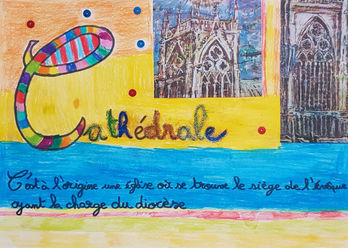 Cathédrale
C'est à l'origine une église où se trouve le siège de l'évêque
ayant la charge du diocèse